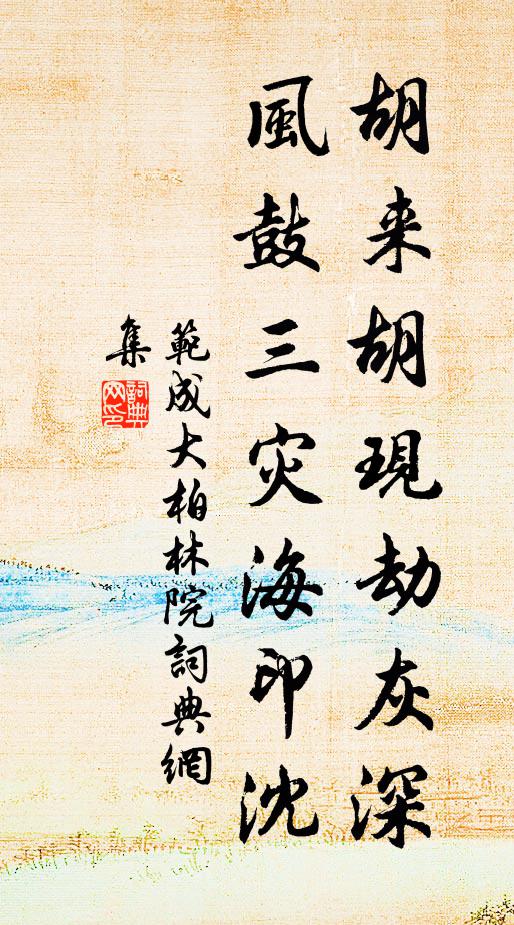 胡来胡現劫灰深
風鼓三灾海印沈
範成大柏林院詞典網
集
詞典
网印